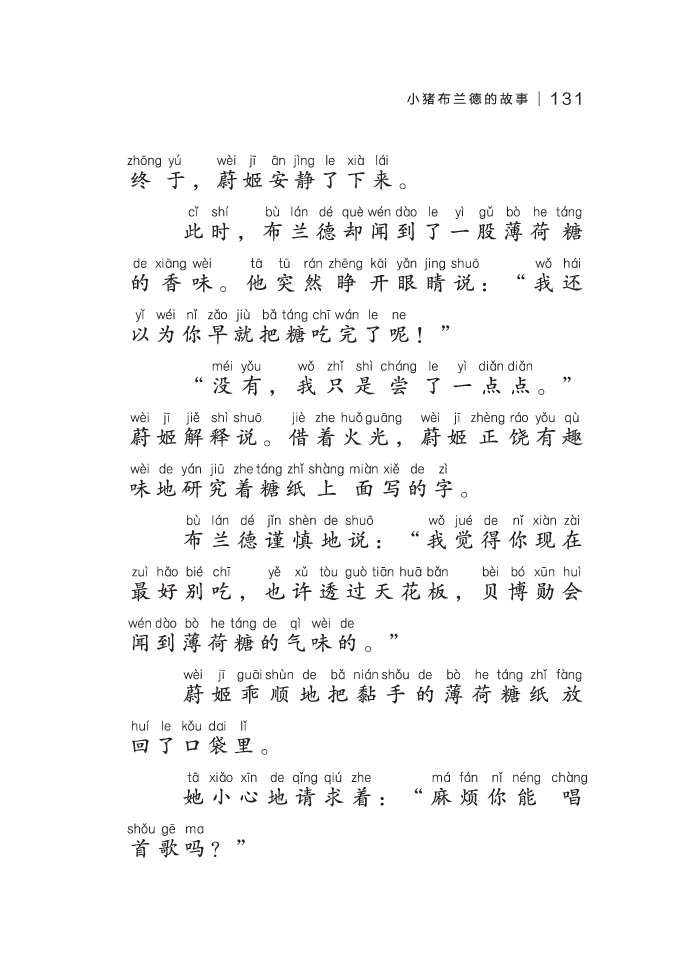 小猪布兰德的故事 | 131
zhōng yú wèi jī ān jìng le xià lái
终于，蔚姬安静了下来。
cǐ shí bù lán dé què wén dào le yì gǔ bò he táng
此时，布兰德却闻到了一股薄荷糖
de xiāng wèi tā tū rán zhēng kāi yǎn jing shuō wǒ hái
的香味。他突然睁开眼睛说：“我还
yǐ wéi nǐ zǎo jiù bǎ táng chī wán le ne
以为你早就把糖吃完了呢！”
méi yǒu wǒ zhǐ shì cháng le yì diǎn diǎn
“没有，我只是尝了一点点。”
wèi jī jiě shì shuō jiè zhe huǒ guāng wèi jī zhèng ráo yǒu qù
蔚姬解释说。借着火光，蔚姬正饶有趣
wèi de yán jiū zhe táng zhǐ shàng miàn xiě de zì
味地研究着糖纸上面写的字。
bù lán dé jǐn shèn de shuō wǒ jué de nǐ xiàn zài
布兰德谨慎地说：“我觉得你现在
zuì hǎo bié chī yě xǔ tòu guò tiān huā bǎn bèi bó xūn huì
最好别吃，也许透过天花板，贝博勋会
wén dào bò he táng de qì wèi de
闻到薄荷糖的气味的。”
wèi jī guāi shùn de bǎ nián shǒu de bò he táng zhǐ fàng
蔚姬乖顺地把黏手的薄荷糖纸放
huí le kǒu dai lǐ
回了口袋里。
tā xiǎo xīn de qǐng qiú zhe má fán nǐ néng chàng
她小心地请求着：“麻烦你能唱
shǒu gē ma
首歌吗？”